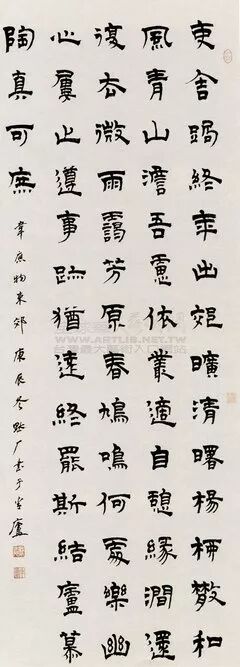 吏舍跼終年出郊曠清曙楊柳散和
風青山澹吾慮依叢適自憩緣澗還
復去微雨靄芳原春鳩鳴何處樂幽
心屢止遵事跡猶遽終罷斯結廬慕
陶真可庶
韋應物東郊 庚辰冬 厂書于 廬
WWW.ARTLIB.NET.TW
台灣最大藝術入口網站